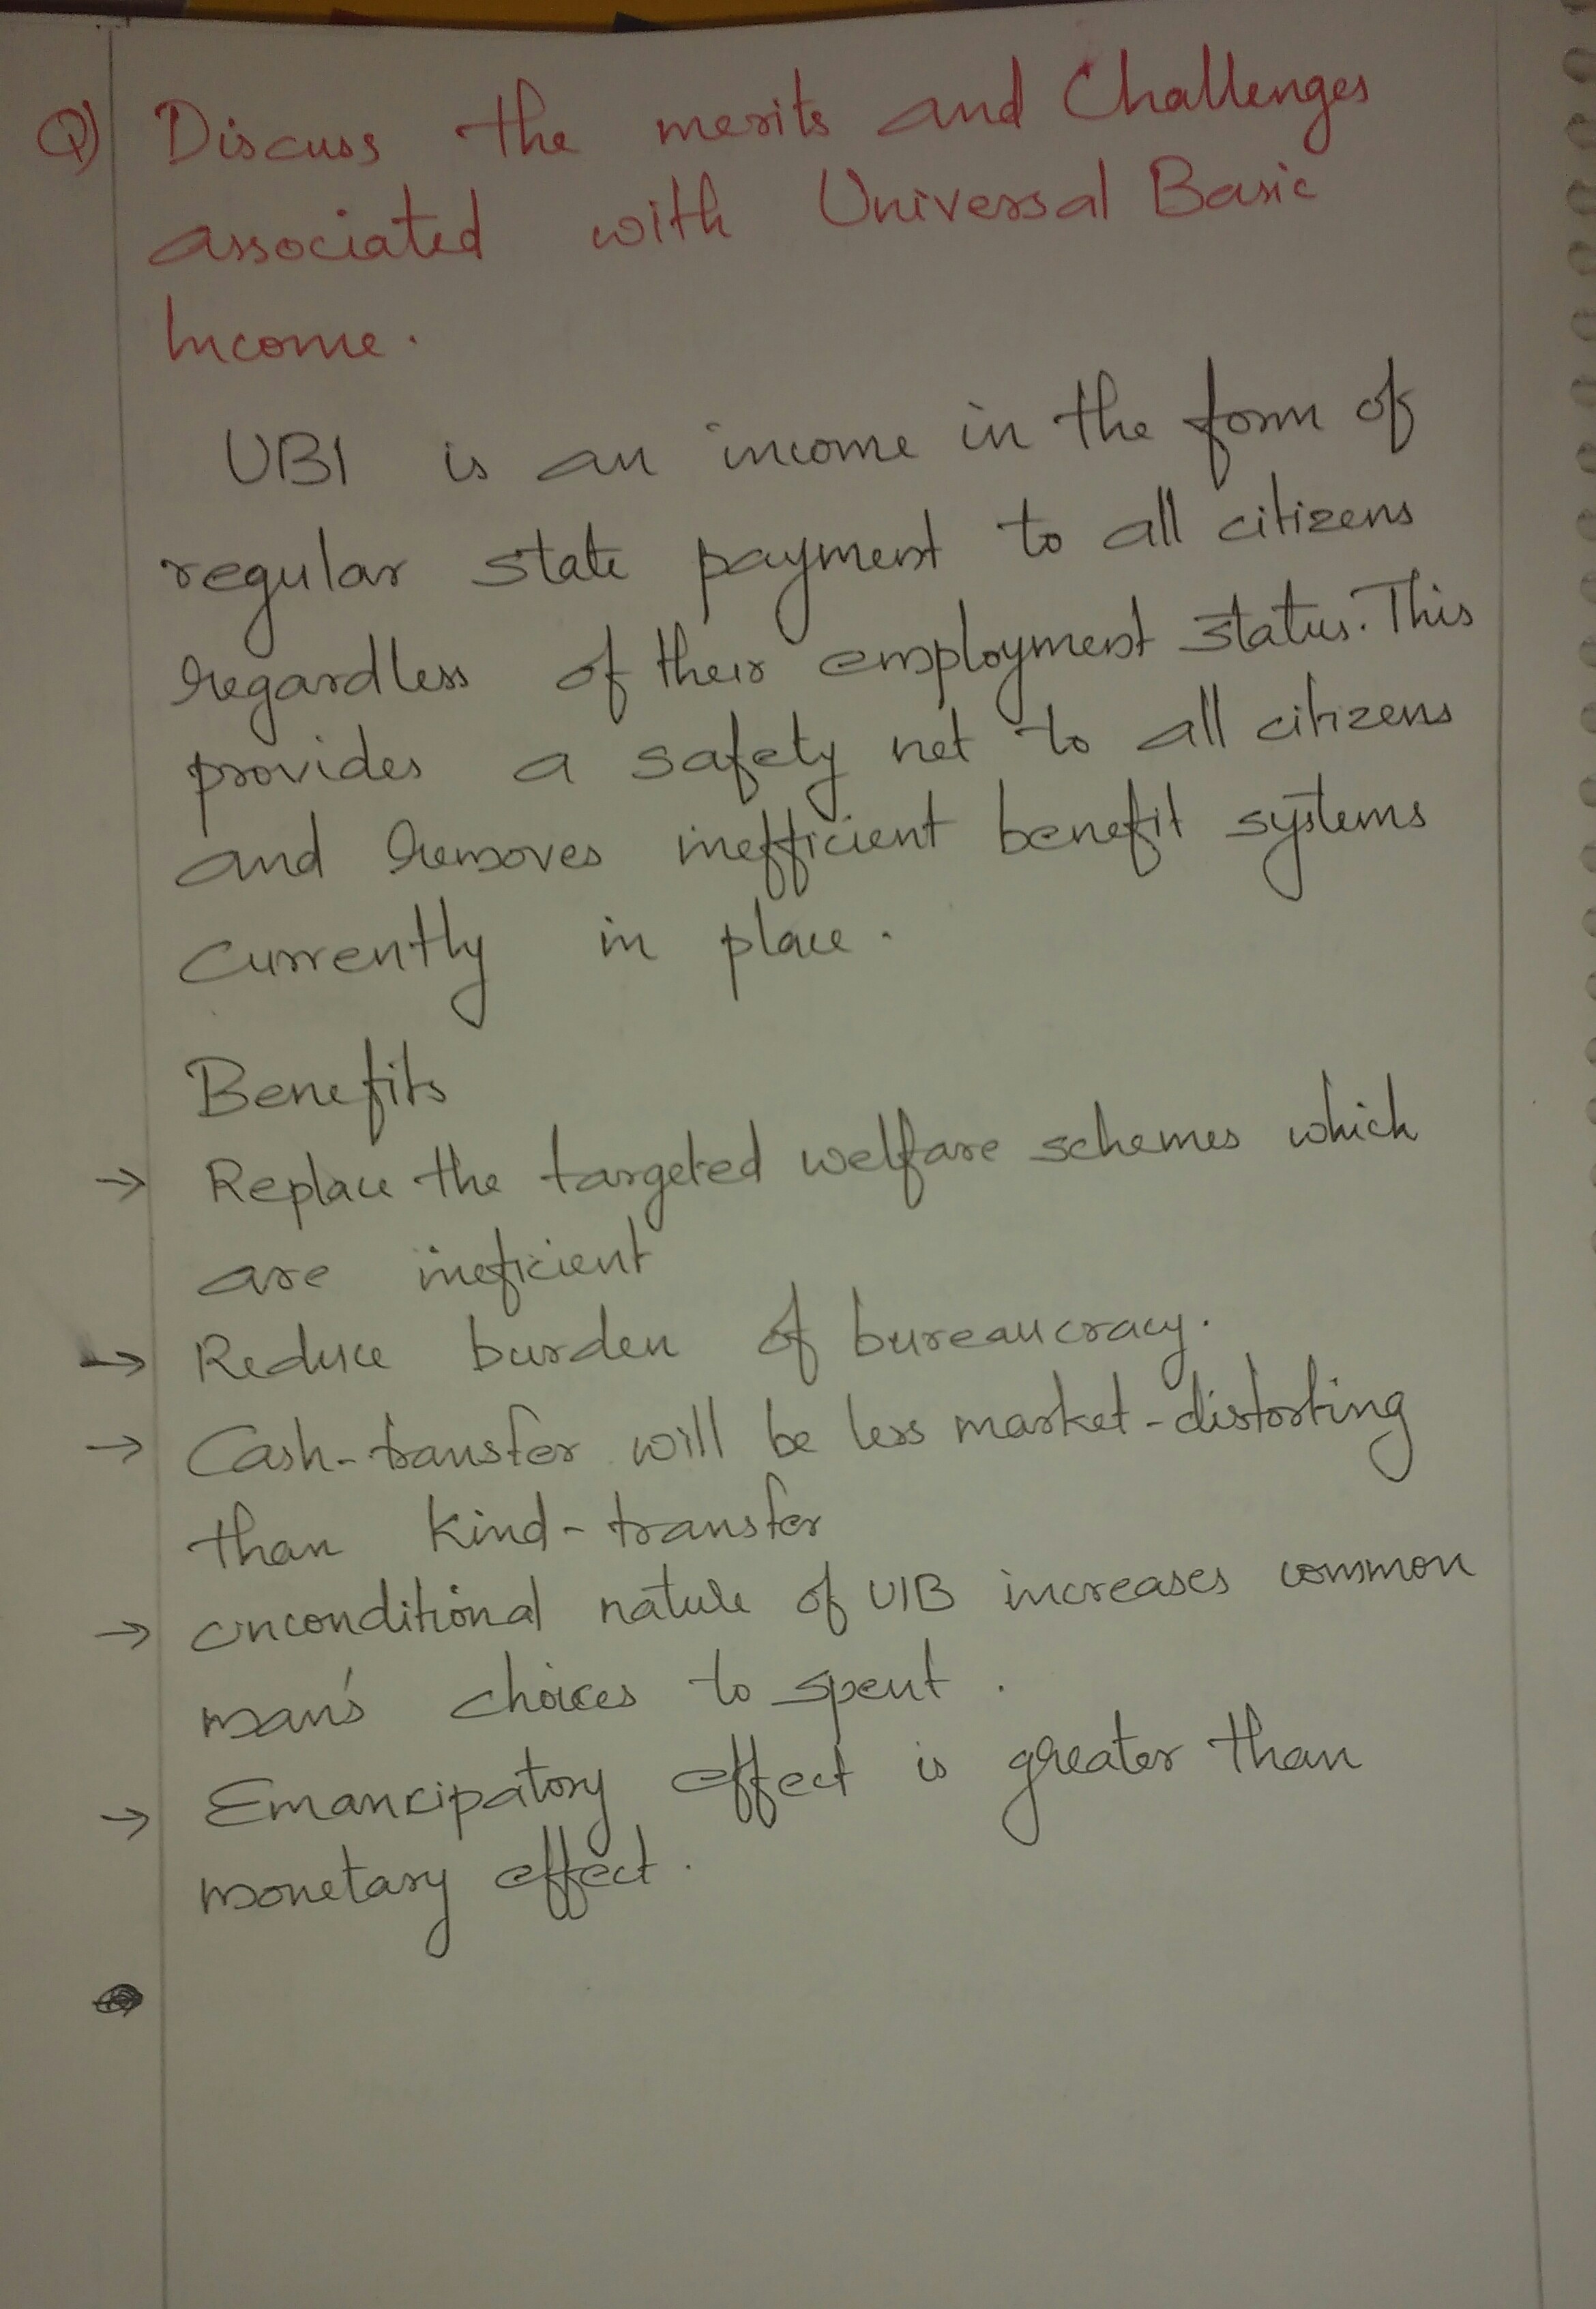 Q) Discuss the merits and Challenges
associated with Universal Basic
Income.
UBI is an income in the form of
regular state payment to all citizens
regardless of their employment status. This
provides a safety net to all citizens
and removes inefficient benefit systems
currently in place.
Benefits
→ Replace the targeted welfare schemes which
are ineficient
→ Reduce burden of bureaucracy.
→ Cash-transfer will be less market-distorting
than kind-transfer
→ unconditional nature of UIB increases common
man's choices to spent.
→ Emancipatory effect is greater than
monetary effect.